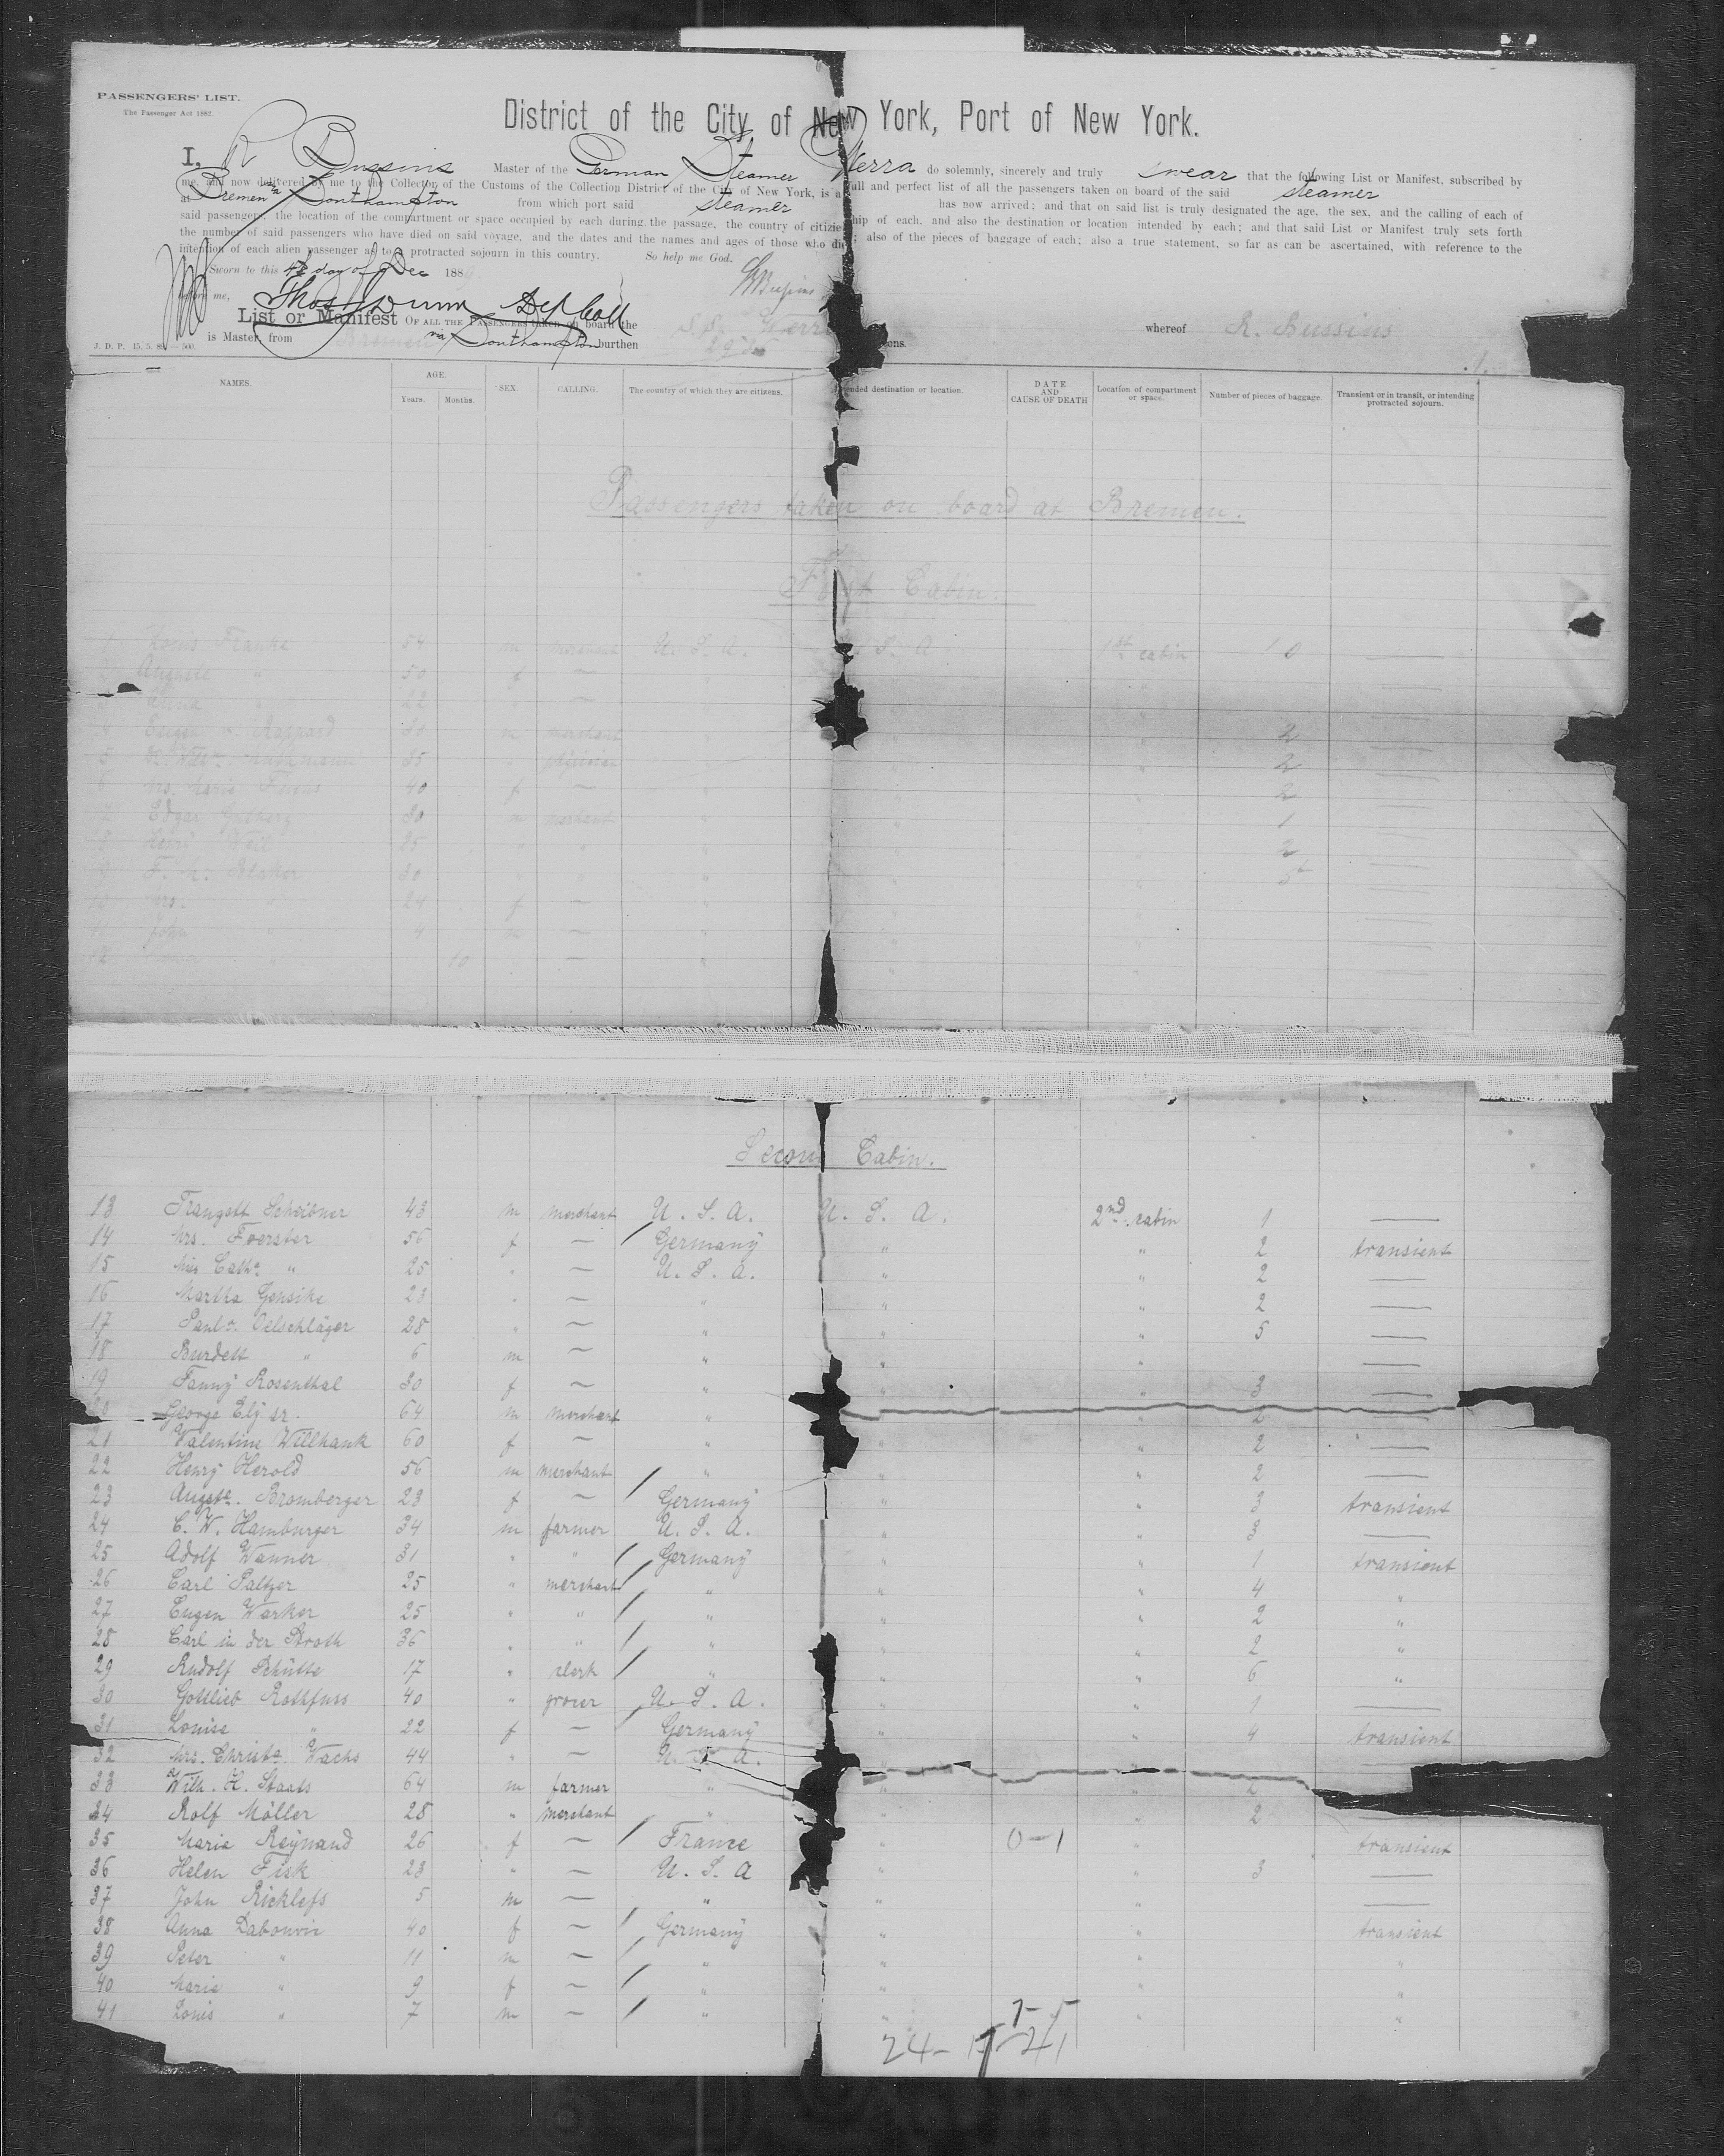 PASSENGERS' LIST.
The Passenger Act 1882.
District of the City of New York, Port of New York.
I, R Bussius Master of the German Steamer Werra do solemnly, sincerely and truly swear that the following List or Manifest, subscribed by
me, and now delivered by me to the Collector of the Customs of the Collection District of the City of New York, is a full and perfect list of all the passengers taken on board of the said steamer
at Bremen via Southampton from which port said steamer has now arrived; and that on said list is truly designated the age, the sex, and the calling of each of
said passengers, the location of the compartment or space occupied by each during the passage, the country of citizenship of each, and also the destination or location intended by each; and that said List or Manifest truly sets forth
the number of said passengers who have died on said voyage, and the dates and the names and ages of those who died; also of the pieces of baggage of each; also a true statement, so far as can be ascertained, with reference to the
intention of each alien passenger as to a protracted sojourn in this country. So help me God.
Sworn to this 4th day of Dec 188
before me, RBussius
Thos Dunn Dep Coll
List or Manifest OF ALL THE PASSENGERS taken on board the S.S. Werra whereof R. Bussius
is Master, from Bremen via Southampton burthen tons.
J. D. P. 15. 5. 89. — 500. 1.
NAMES. AGE. Years. Months. SEX. CALLING. The country of which they are citizens. Intended destination or location. DATE AND CAUSE OF DEATH Location of compartment or space. Number of pieces of baggage. Transient or in transit, or intending protracted sojourn.
Passengers taken on board at Bremen.
First Cabin.
1 Franke 54 m merchant U. S. A. U. S. A 1st cabin 10 —
2 Auguste " 50 f — " " " —
3 Anna " 22 " — " " " —
4 Eugen 31 m merchant " " " 2 —
5 35 " physician " " " 2 —
6 Mrs. Marie 40 f — " " " 2 —
7 Edgar 30 m merchant " " " 1 —
8 Henry Weil 25 " " " " " 2 —
9 F. Blaker 30 " " " " " 5 —
10 Mrs. " 24 f — " " " —
11 John " 4 m — " " " —
12 " 10 " — " " " —
Second Cabin.
13 Traugott Scheibner 43 m merchant U. S. A. U. S. A. 2nd cabin 1 —
14 Mrs. Foerster 56 f — Germany " " 2 transient
15 Miss Cath. " 25 " — U. S. A. " " 2 —
16 Martha Gensike 23 " — " " " 2 —
17 Paul. Oelschläger 28 " — " " " 5 —
18 Burdett " 6 m — " " " —
19 Fanny Rosenthal 30 f — " " " 3 —
20 George Ely sr. 64 m merchant " " " 2 —
21 Valentine Willhauk 60 f — " " " 2 —
22 Henry Herold 56 m merchant " " " 2 —
23 Augste. Bromberger 23 f — Germany " " 3 transient
24 C. W. Hamburger 34 m farmer U. S. A. " " 3 —
25 Adolf Wanner 31 " " Germany " " 1 transient
26 Carl Paltzer 25 " merchant " " " 4 "
27 Eugen Warker 25 " " " " " 2 "
28 Carl in der Stroth 36 " " " " " 2 "
29 Rudolf Schütte 17 " clerk " " " 6 "
30 Gottlieb Rothfuss 40 " grocer U. S. A. " " 1 —
31 Louise " 22 f — Germany " " 4 transient
32 Mrs. Christe. Wachs 44 " — U. S. A. " —
33 Wilh. H. Staats 64 m farmer " " " 2
34 Rolf Möller 28 " merchant " " " 2
35 Marie Reynaud 26 f — France " 0-1 " transient
36 Helen Fisk 23 " — U. S. A " " 3 —
37 John Ricklefs 5 m — " " " —
38 Anna Dabouvie 40 f — Germany " " transient
39 Peter " 11 m — " " " "
40 Marie " 9 f — " " " "
41 Louis " 7 m — " " " "
7-5
24-17-41